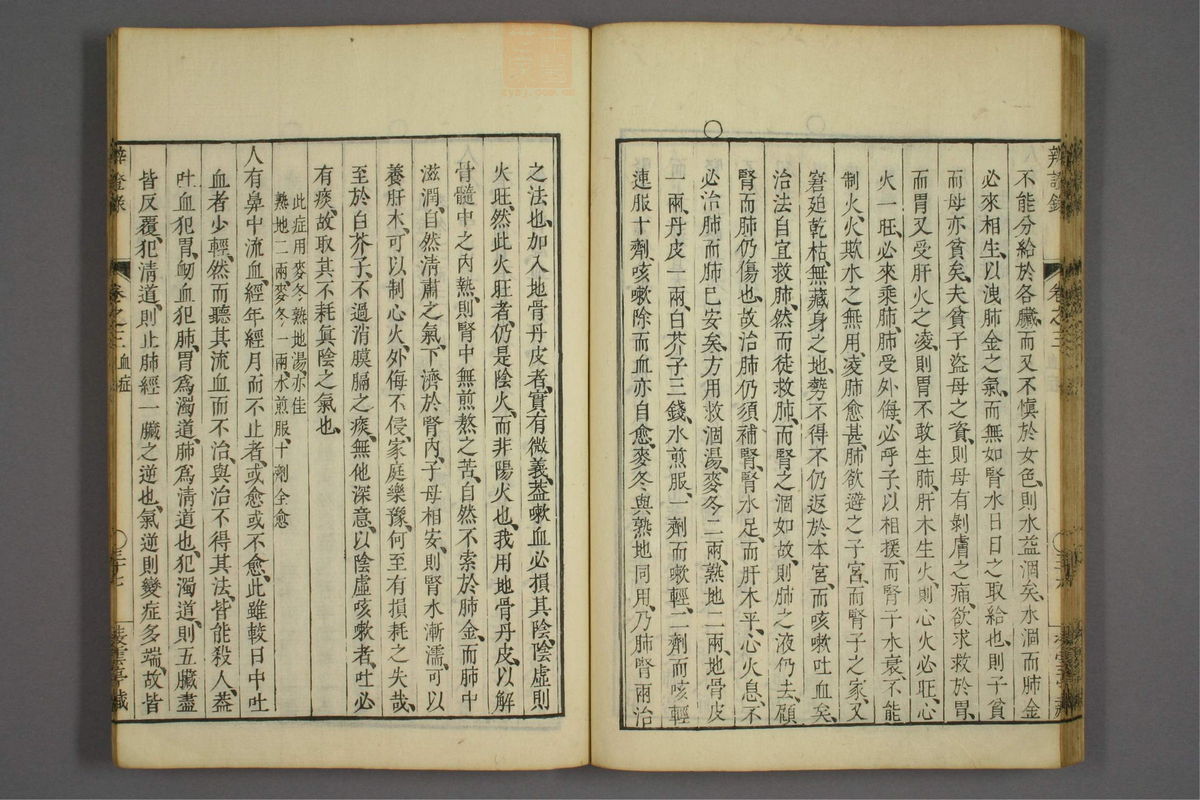 辨證錄
卷之三
不能分給於各臟而又不愼於女色則水益涸矣水涸而肺金
必來相生以洩肺金之氣而無如腎水日日之取給也則子貧
而母亦貧矣夫貧子盜母之資則母有剝膚之痛欲求救於胃
而胃又受肝火之凌則胃不敢生肺肝木生火則心火必旺心
火一旺必來乘肺肺受外侮必呼子以相援而腎子水衰不能
制火火欺水之無用凌肺愈甚肺欲避之子宮而腎子之家又
窘迫乾枯無藏身之地勢不得不仍返於本宮而咳嗽吐血矣
治法自宜救肺然而徒救肺而腎之涸如故則肺之液仍去顧
腎而肺仍傷也故治肺仍須補腎腎水足而肝木平心火息不
必治肺而肺已安矣方用救涸湯麥冬二兩熟地二兩地骨皮
一兩丹皮一兩白芥子三錢水煎服一劑而嗽輕二劑而咳輕
連服十劑咳嗽除而血亦自愈麥冬與熟地同用乃肺腎兩治
之法也加入地骨丹皮者實有微義蓋嗽血必損其陰陰虛則
火旺然此火旺者仍是陰火而非陽火也我用地骨丹皮以解
骨髓中之內熱則腎中無煎熬之苦自然不索於肺金而肺中
滋潤自然清肅之氣下濟於腎內子母相安則腎水漸濡可以
養肝木可以制心火外侮不侵家庭樂豫何至有損耗之失哉
至於白芥子不過消膜膈之痰無他深意以陰虛咳嗽者吐必
有痰故取其不耗眞陰之氣也
此症用麥冬熟地湯亦佳
熟地二兩麥冬一兩水煎服十劑全愈
人有鼻中流血經年經月而不止者或愈或不愈此雖較日中吐
血者少輕然而聽其流血而不治與治不得其法皆能殺人蓋
吐血犯胃衂血犯肺胃爲濁道肺爲清道也犯濁道則五臟盡
皆反覆犯清道則止肺經一臟之逆也氣逆則變症多端故皆
辨證錄
卷之三
血症
三十七